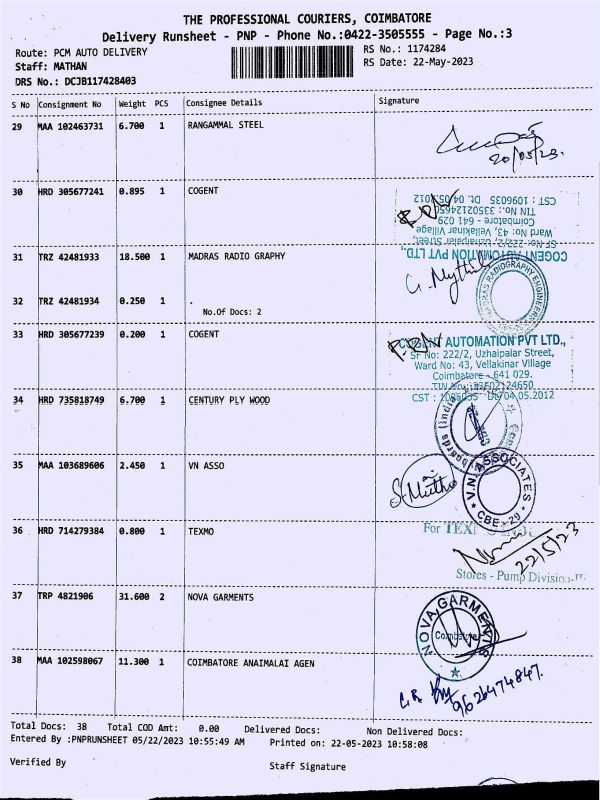 THE PROFESSIONAL COURIERS, COIMBATORE
Delivery Runsheet - PNP - Phone No.:0422-3505555 - Page No.:3
Route: PCM AUTO DELIVERY
RS No.: 1174284
Staff: MATHAN
RS Date: 22-May-2023
DRS No.: DCJB117428403
S No Consignment No Weight PCS Consignee Details Signature
29 MAA 102463731 6.700 1 RANGAMMAL STEEL
20/05/23.
30 HRD 305677241 0.895 1 COGENT
CST : 1096035 Dt. 04.05.2012
TIN No.: 33502124650
Coimbatore - 641 029
Ward No: 43, Vellakinar Village
SF No: 222/2, Uzhaipalar Street,
COGENT AUTOMATION PVT LTD.,
31 TRZ 42481933 18.500 1 MADRAS RADIO GRAPHY
MADRAS RADIOGRAPHY ENGINEERS
32 TRZ 42481934 0.250 1 .
No.Of Docs: 2
33 HRD 305677239 0.200 1 COGENT
COGENT AUTOMATION PVT LTD.,
SF No: 222/2, Uzhaipalar Street,
Ward No: 43, Vellakinar Village
Coimbatore - 641 029.
TIN No.: 33502124650
CST : 1096035 Dt. 04.05.2012
34 HRD 735818749 6.700 1 CENTURY PLY WOOD
35 MAA 103689606 2.450 1 VN ASSO
V.N. ASSOCIATES
CBE - 29
36 HRD 714279384 0.800 1 TEXMO
For TEX
22/5/23
Stores - Pump Division
37 TRP 4821906 31.600 2 NOVA GARMENTS
NOVA GARMENTS
Coimbatore
38 MAA 102598067 11.300 1 COIMBATORE ANAIMALAI AGEN
9626474847.
Total Docs: 38 Total COD Amt: 0.00 Delivered Docs: Non Delivered Docs:
Entered By :PNPRUNSHEET 05/22/2023 10:55:49 AM Printed on: 22-05-2023 10:58:08
Verified By
Staff Signature